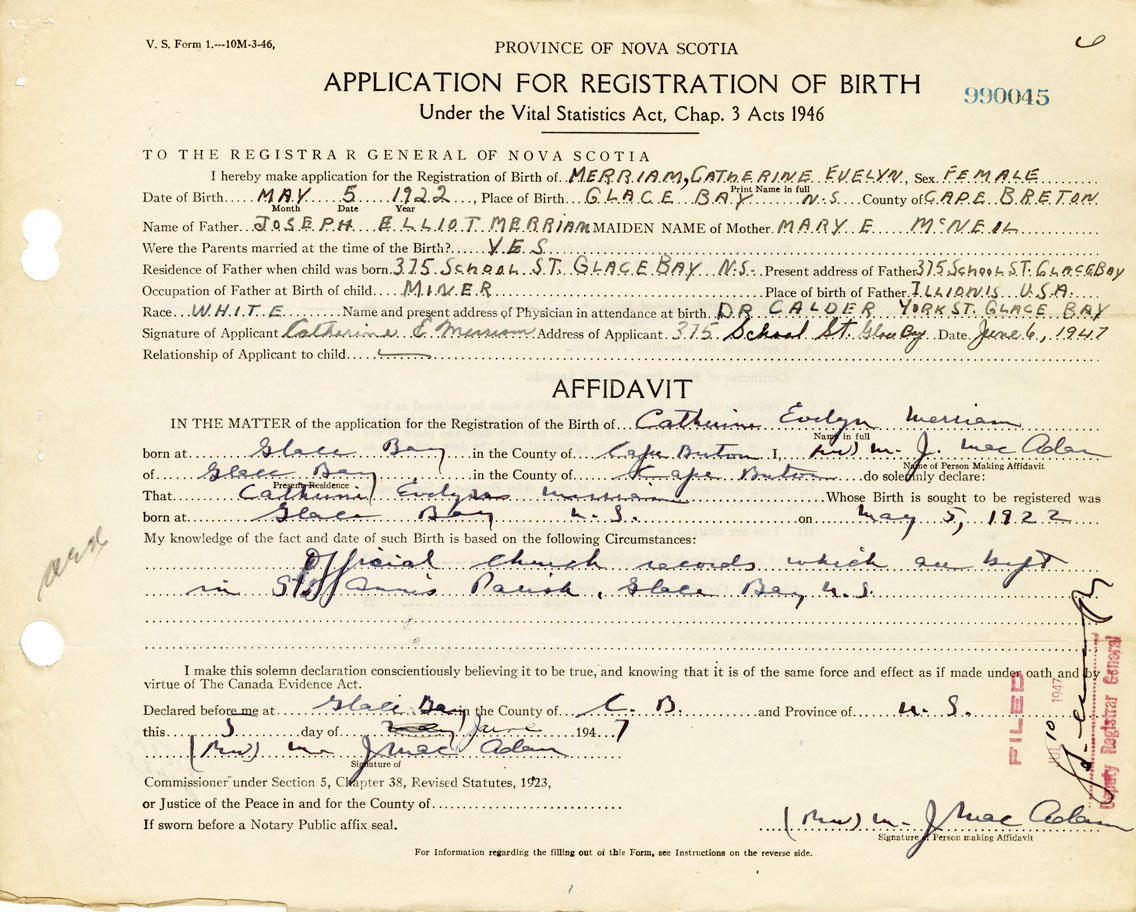 V. S. Form 1.---10M-3-46,
PROVINCE OF NOVA SCOTIA
6
APPLICATION FOR REGISTRATION OF BIRTH
990045
Under the Vital Statistics Act, Chap. 3 Acts 1946
TO THE REGISTRAR GENERAL OF NOVA SCOTIA
I hereby make application for the Registration of Birth of MERRIAM, CATHERINE EVELYN, Sex FEMALE
Print Name in full
Date of Birth MAY 5 1922, Place of Birth GLACE BAY N.S County of CAPE BRETON
Month Date Year
Name of Father JOSEPH ELLIOT MERRIAM MAIDEN NAME of Mother MARY E McNEIL
Were the Parents married at the time of the Birth? YES
Residence of Father when child was born 375 SCHOOL ST. GLACE BAY N.S. Present address of Father 375 SCHOOL ST. GLACE BAY
Occupation of Father at Birth of child MINER Place of birth of Father ILLIONIS U.S.A.
Race WHITE Name and present address of Physician in attendance at birth DR CALDER YORK ST. GLACE BAY
Signature of Applicant Catherine E Merriam Address of Applicant 375 School St. Glace Bay Date June 6, 1947
Relationship of Applicant to child
AFFIDAVIT
IN THE MATTER of the application for the Registration of the Birth of Catherine Evelyn Merriam
Name in full
born at Glace Bay in the County of Cape Breton I, (Rev) M. J. Mac Adam
Name of Person Making Affidavit
of Glace Bay in the County of Cape Breton do solemnly declare:
Present Residence
That Catherine Evelyn Merriam Whose Birth is sought to be registered was
born at Glace Bay N. S. on May 5, 1922
My knowledge of the fact and date of such Birth is based on the following Circumstances:
Official church records which are kept
in St Ann's Parish, Glace Bay N.S.
I make this solemn declaration conscientiously believing it to be true, and knowing that it is of the same force and effect as if made under oath and by
virtue of The Canada Evidence Act.
Declared before me at Glace Bay in the County of C. B. and Province of N. S.
this 5 day of May June 1947
(Rev) M. J Mac Adam
Signature of
Commissioner under Section 5, Chapter 38, Revised Statutes, 1923,
or Justice of the Peace in and for the County of
If sworn before a Notary Public affix seal.
(Rev) M. J Mac Adam
Signature of Person making Affidavit
For Information regarding the filling out of this Form, see Instructions on the reverse side.
FILED
JUL 10 1947
Deputy Registrar General